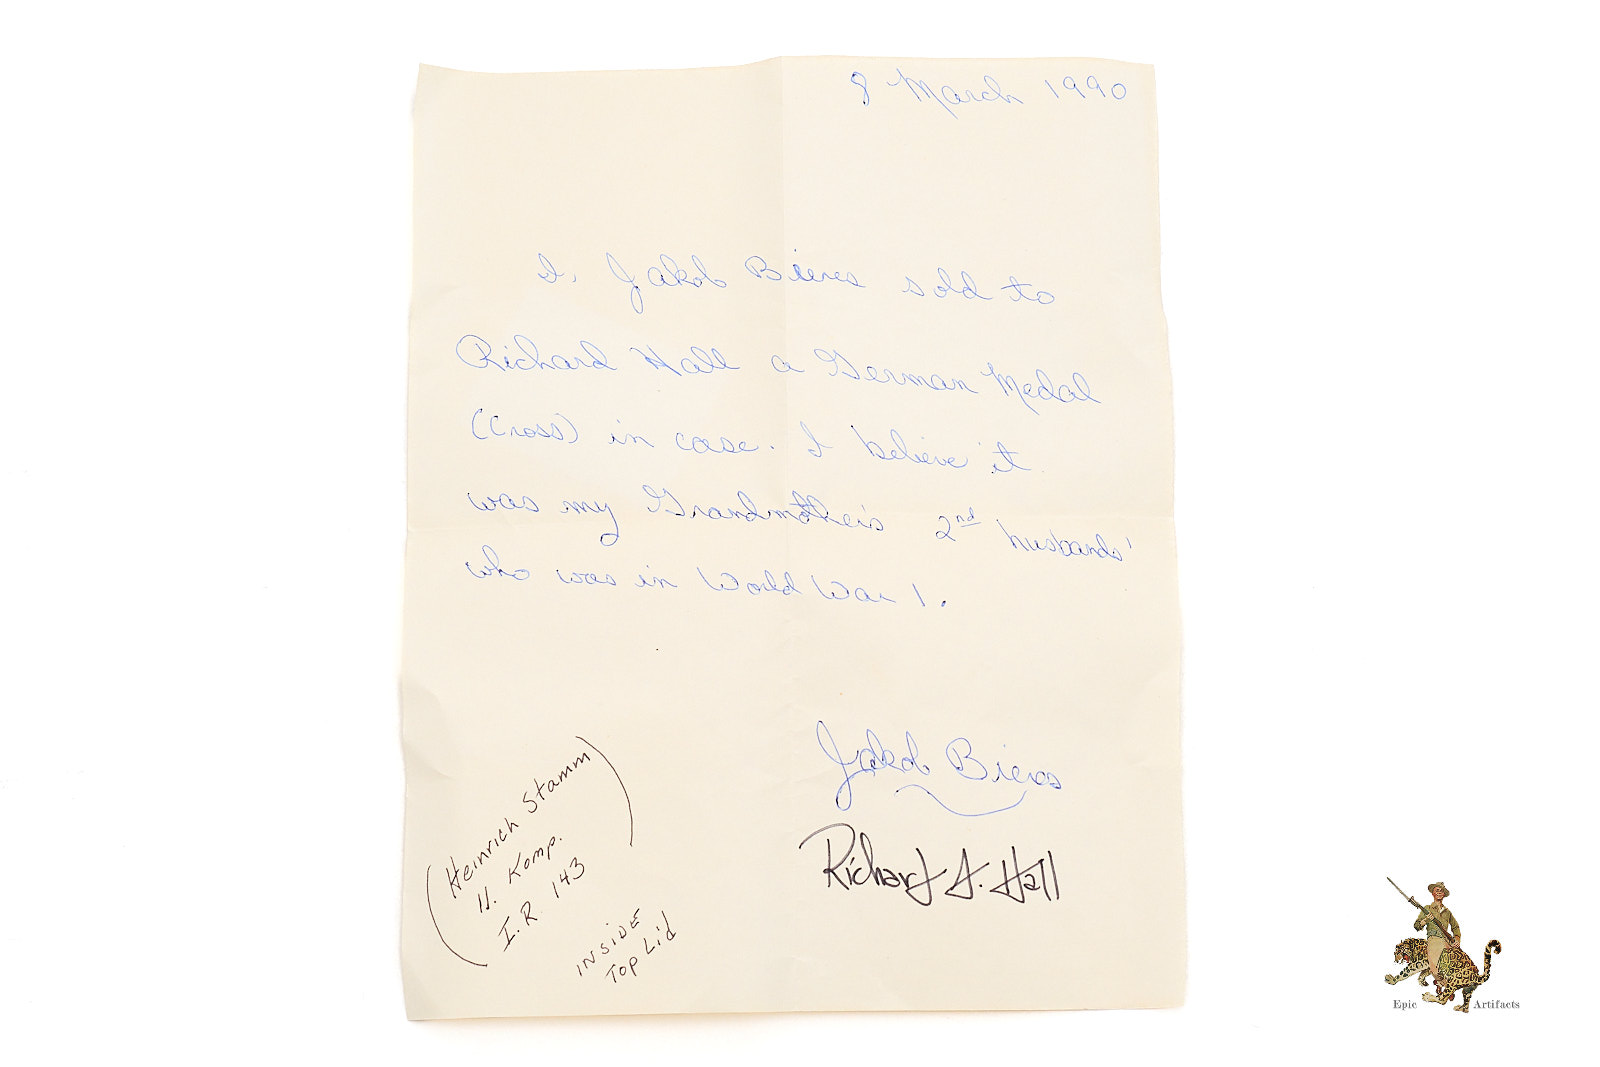 8 March 1990
I, Jakob Bieres sold to
Richard Hall a German Medal
(Cross) in case. I believe it
was my Grandmother's 2nd husbands'
who was in World War 1.
Jakob Bieres
Richard A. Hall
(Heinrich Stamm)
11. Komp.
I.R. 143
INSIDE
Top Lid
Epic Artifacts